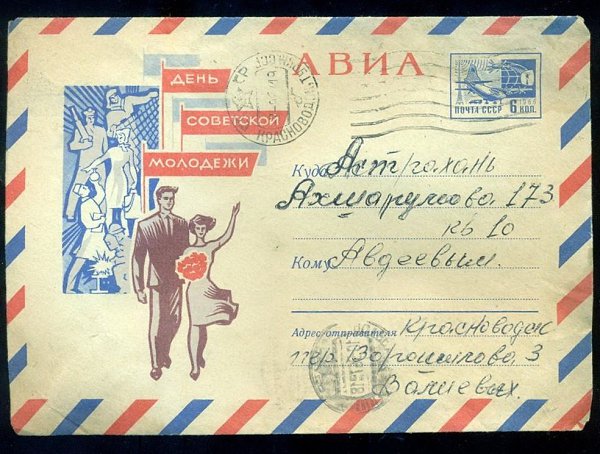 АВИА
ДЕНЬ
СОВЕТСКОЙ
МОЛОДЕЖИ
1966
ПОЧТА СССР 6 КОП.
Куда Астрахань
Ахшарумова 173
кв 10
Кому Авдеевым.
Адрес отправителя Красноводск
пер. Ворошилова, 3